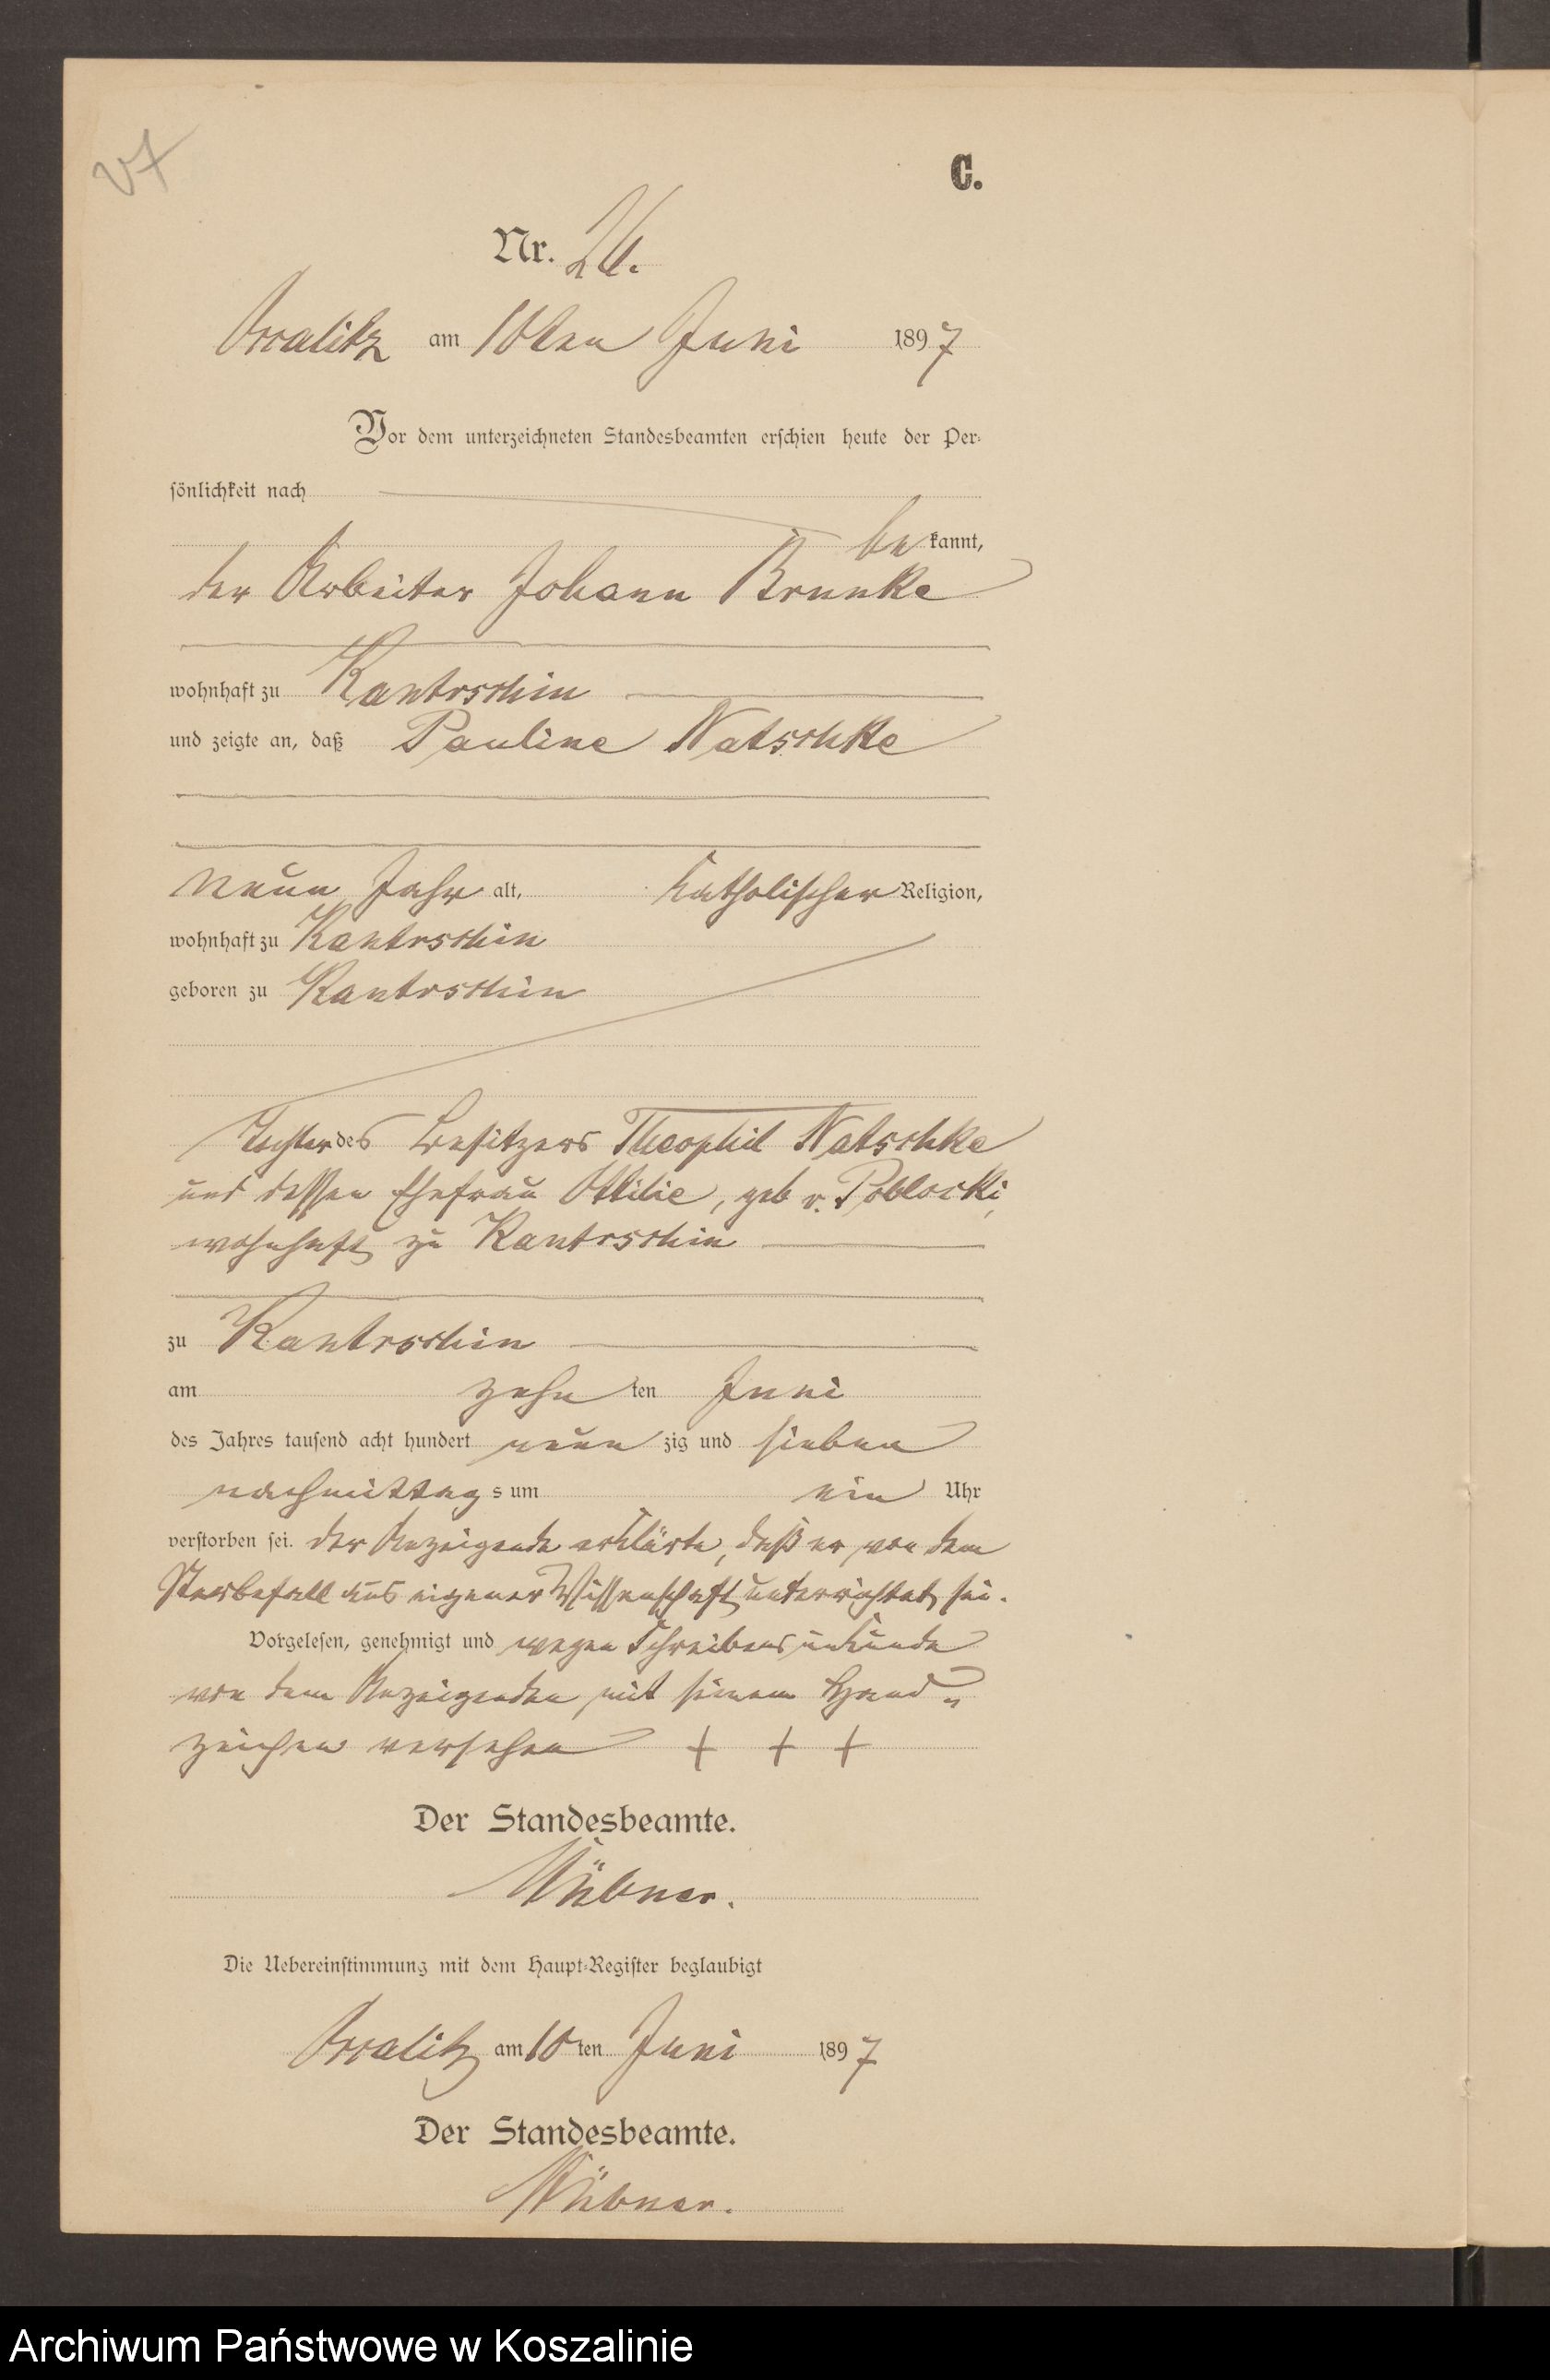 27
C.
Nr. 26.
Ossalitz am 10ten Juni 1897
Vor dem unterzeichneten Standesbeamten erschien heute der Per-
sönlichkeit nach
be kannt,
der Arbeiter Johann Brunke
wohnhaft zu Kantrschin
und zeigte an, daß Pauline Natschke
neun Jahr alt, katholischer Religion,
wohnhaft zu Kantrschin
geboren zu Kantrschin
Tochter des Besitzers Theophil Natschke
und dessen Ehefrau Ottilie, geb v. Poblocki,
wohnhaft zu Kantrschin
zu Kantrschin
am zehn ten Juni
des Jahres tausend acht hundert neun zig und sieben
nachmittag s um ein Uhr
verstorben sei. Der Anzeigende erklärte, daß er von dem
Sterbefall aus eigener Wissenschaft unterrichtet sei.
Vorgelesen, genehmigt und wegen Schreibensunkunde
von dem Anzeigenden mit seinem Hand-
zeichen versehen + + +
Der Standesbeamte.
Hübner.
Die Uebereinstimmung mit dem Haupt-Register beglaubigt
Ossalitz am 10 ten Juni 1897
Der Standesbeamte.
Hübner.
Archiwum Państwowe w Koszalinie